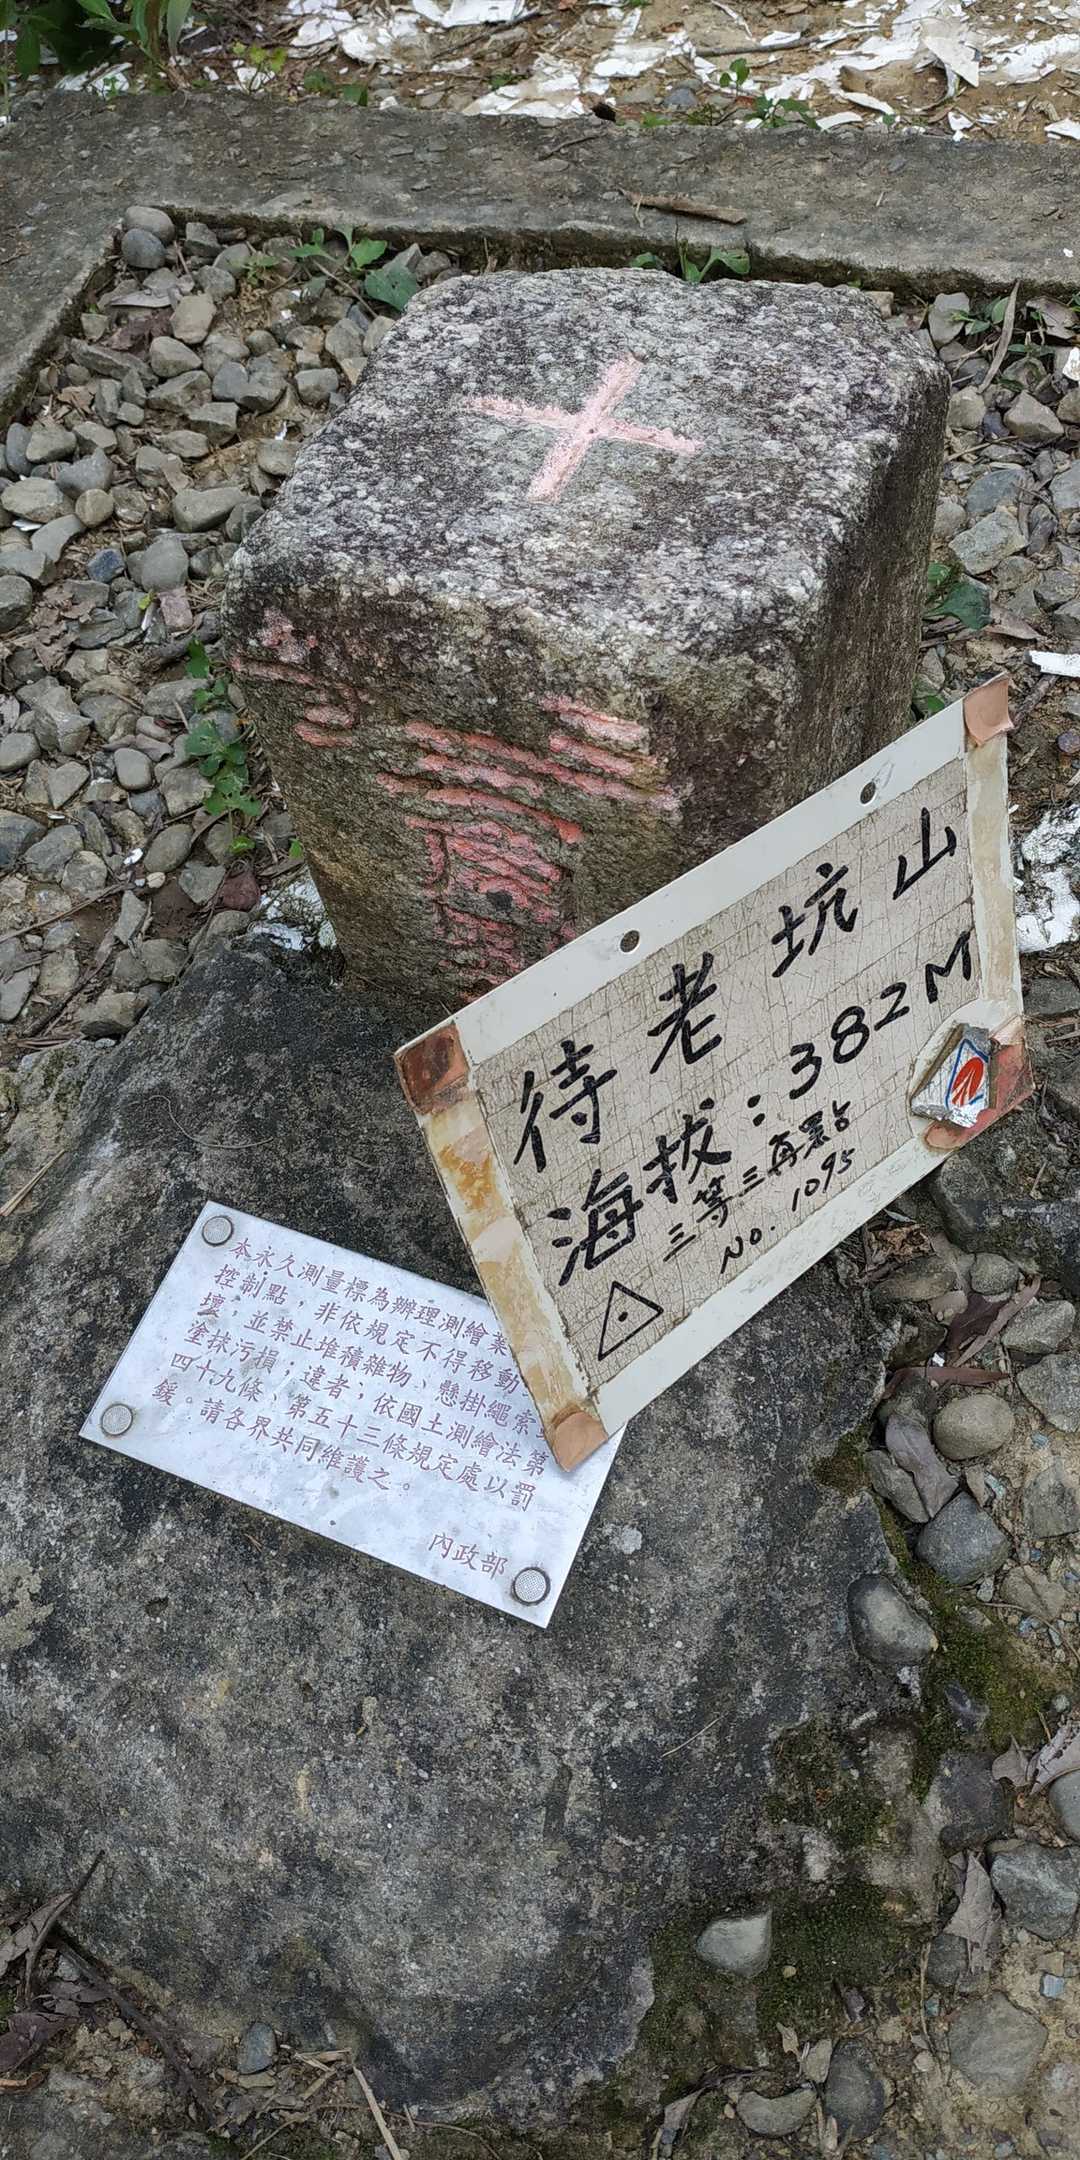 待老坑山
海拔:382M
三等三角點
No. 1095
本永久測量標為辦理測繪業
控制點，非依規定不得移動
壞；並禁止堆積雜物、懸掛繩索
塗抹污損；違者；依國土測繪法第
四十九條、第五十三條規定處以罰
鍰。請各界共同維護之。
內政部